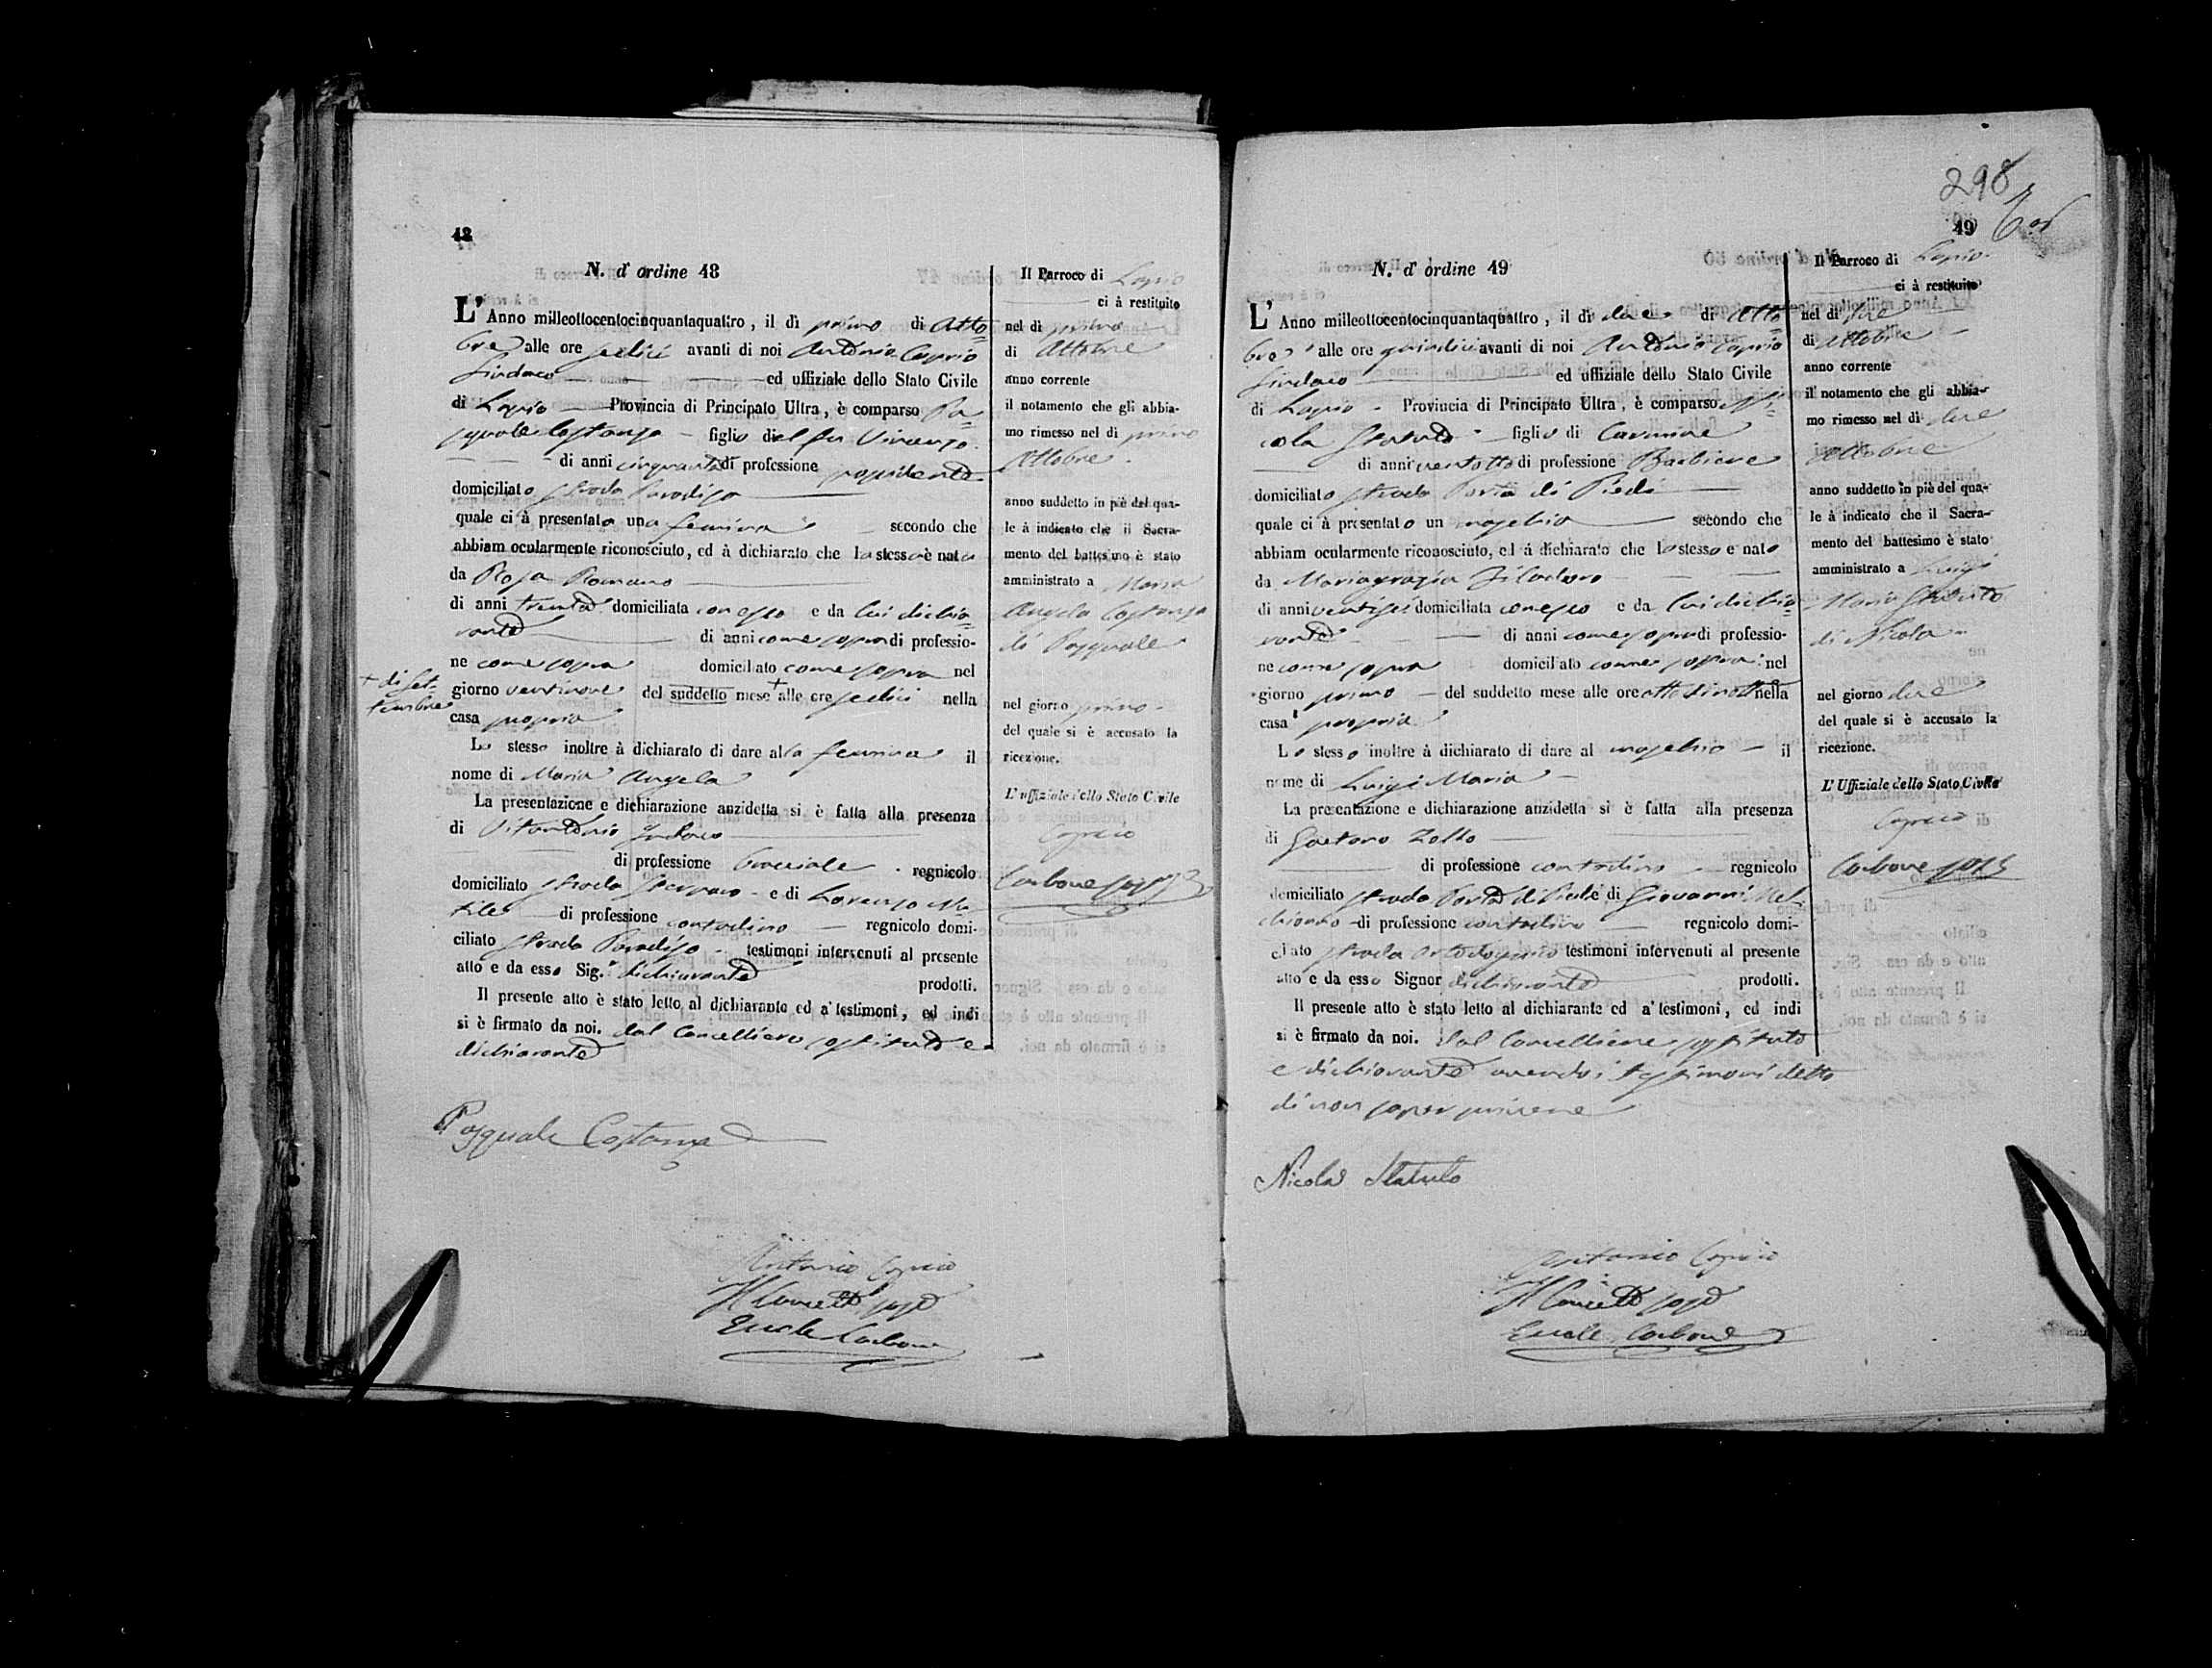 48
N. d' ordine 48
L' Anno millеottocentocinquantaquattro, il dì primo di Otto=
bre alle ore sedici avanti di noi Antonio Caprio
Sindaco ed uffiziale dello Stato Civile
di Lapio Provincia di Principato Ultra, è comparso Pa=
squale Costanza figlio del fu Vincenzo
di anni cinquanta di professione possidente
domiciliato strada Paradiso
quale ci à presentato una femina secondo che
abbiam ocularmente riconosciuto, ed à dichiarato che la stessa è nata
da Rosa Romano
di anni trenta domiciliata con esso e da lui dichia=
rante di anni come sopra di professio-
ne come sopra domiciliato come sopra nel
giorno ventinove del suddetto mese + alle ore sedici nella
+ di Set=
tembre
casa propria
Lo stesso inoltre à dichiarato di dare alla femina il
nome di Maria Angela
La presentazione e dichiarazione anzidetta si è fatta alla presenza
di Vitantonio
di professione bracciale regnicolo
domiciliato strada e di Lorenzo
di professione contadino regnicolo domi-
ciliato strada Paradiso testimoni intervenuti al presente
atto e da esso Sig. dichiarante prodotti.
Il presente atto è stato letto al dichiarante ed a' testimoni, ed indi
si è firmato da noi. dal Cancelliere sostituto e
dichiarante
Pasquale Costanza
Antonio Caprio
Il Cancell. sost.
Carbone
Il Parroco di Lapio
ci à restituito
nel di primo
di Ottobre
anno corrente
il notamento che gli abbia-
mo rimesso nel di primo
Ottobre
anno suddetto in piè del qua-
le à indicato che il Sacra-
mento del battesimo è stato
amministrato a Maria
Angela Costanza
di Pasquale
nel giorno primo
del quale si è accusato la
ricezione.
L'uffiziale dello Stato Civile
Caprio
Carbone sost.
298
49
N. d' ordine 49
L' Anno milleottocentocinquantaquattro, il dì due di Otto=
bre alle ore quindici avanti di noi Antonio Caprio
Sindaco ed uffiziale dello Stato Civile
di Lapio Provincia di Principato Ultra, è comparso Ni=
cola Statuto figlio di Carmine
di anni ventotto di professione Barbiere
domiciliato strada Porta di Piedi
quale ci à presentato un maschio secondo che
abbiam ocularmente riconosciuto, ed à dichiarato che lo stesso e nato
da Mariagrazia Filadoro
di anni ventisei domiciliata con esso e da lui dichia=
rante di anni come sopra di professio-
ne come sopra domiciliato come sopra nel
giorno primo del suddetto mese alle ore nella
casa propria
Lo stesso inoltre à dichiarato di dare al maschio il
nome di Luigi Maria
La presentazione e dichiarazione anzidetta si è fatta alla presenza
di Gaetano Zollo
di professione contadino regnicolo
domiciliato strada Porta di Piedi e di Giovanni Mel=
chionno di professione contadino regnicolo domi-
ciliato strada testimoni intervenuti al presente
atto e da esso Signor dichiarante prodotti.
Il presente atto è stato letto al dichiarante ed a' testimoni, ed indi
si è firmato da noi. dal Cancelliere sostituto
e dichiarante avendo i testimoni detto
di non saper scrivere
Nicola Statuto
Antonio Caprio
Il Cancell. sost.
Carbone
Il Parroco di Lapio
ci à restituito
nel di due
di Ottobre
anno corrente
il notamento che gli abbia-
mo rimesso nel di due
Ottobre
anno suddetto in piè del qua-
le à indicato che il Sacra-
mento del battesimo è stato
amministrato a Luigi
Maria Statuto
di Nicola
nel giorno due
del quale si è accusato la
ricezione.
L' Uffiziale dello Stato Civile
Caprio
Carbone sost.